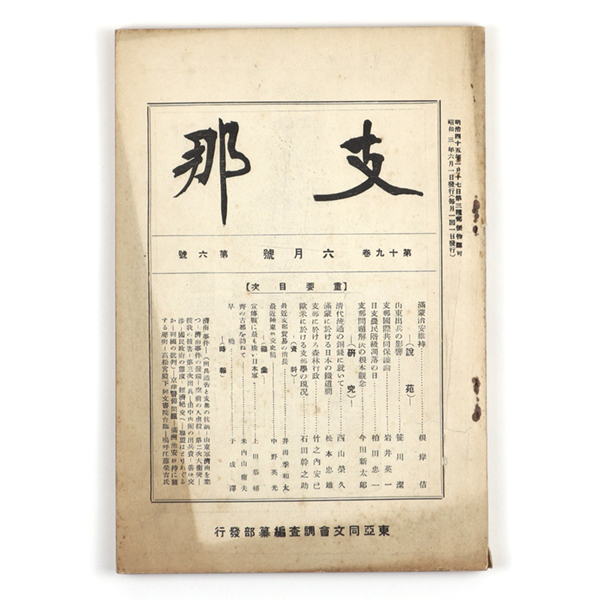 明治四十五年二月十七日第三種郵便物認可
昭和三年六月一日發行(每月一回一日發行)
支那
第十九卷 六月號 第六號
【重要目次】
滿蒙治安維持 根岸佶
―(說苑)―
山東出兵の影響 笹川潔
支那國際共同保論 岩井英一
日支農民階級凋落の日 柏田忠一
支那問題解決の根本觀念 今田新太郎
―(硏究)―
清代流通の銅錢に就いて 西山榮久
滿蒙に於ける日本の鐵道網 松本忠雄
支那に於ける森林行政 竹之內安巳
歐米に於ける支那學の現況 石田幹之助
―(資料)―
最近支那貿易の消長 井出季和太
最近 中野英光
宣傳戰に最も拙い日本軍 上田恭輔
齊の古都を訪ねて 米內山庸夫
早曉 于成澤
―(時報)―
東亞同文會調查編纂部發行